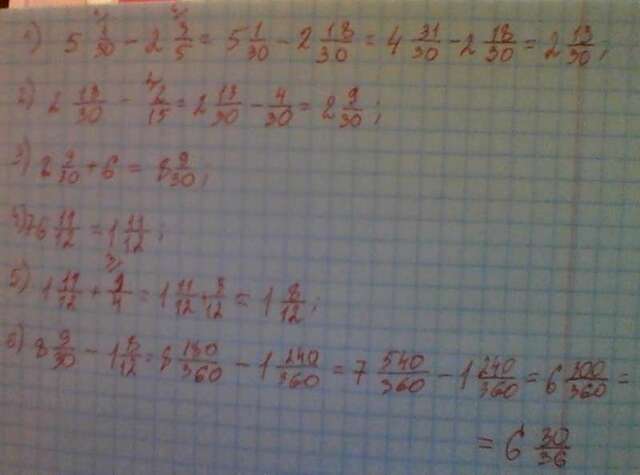 1) 5 1/30 - 2 3/5 = 5 1/30 - 2 18/30 = 4 31/30 - 2 18/30 = 2 13/30;
2) 2 13/30 - 2/15 = 2 13/30 - 4/30 = 2 9/30;
3) 2 9/30 + 6 = 8 9/30;
4) 6 11/12 = 1 11/12;
5) 1 11/12 + 1/4 = 1 11/12 + 3/12 = 1 8/12;
6) 8 9/30 - 1 8/12 = 8 180/360 - 1 240/360 = 7 540/360 - 1 240/360 = 6 300/360 =
= 6 30/36